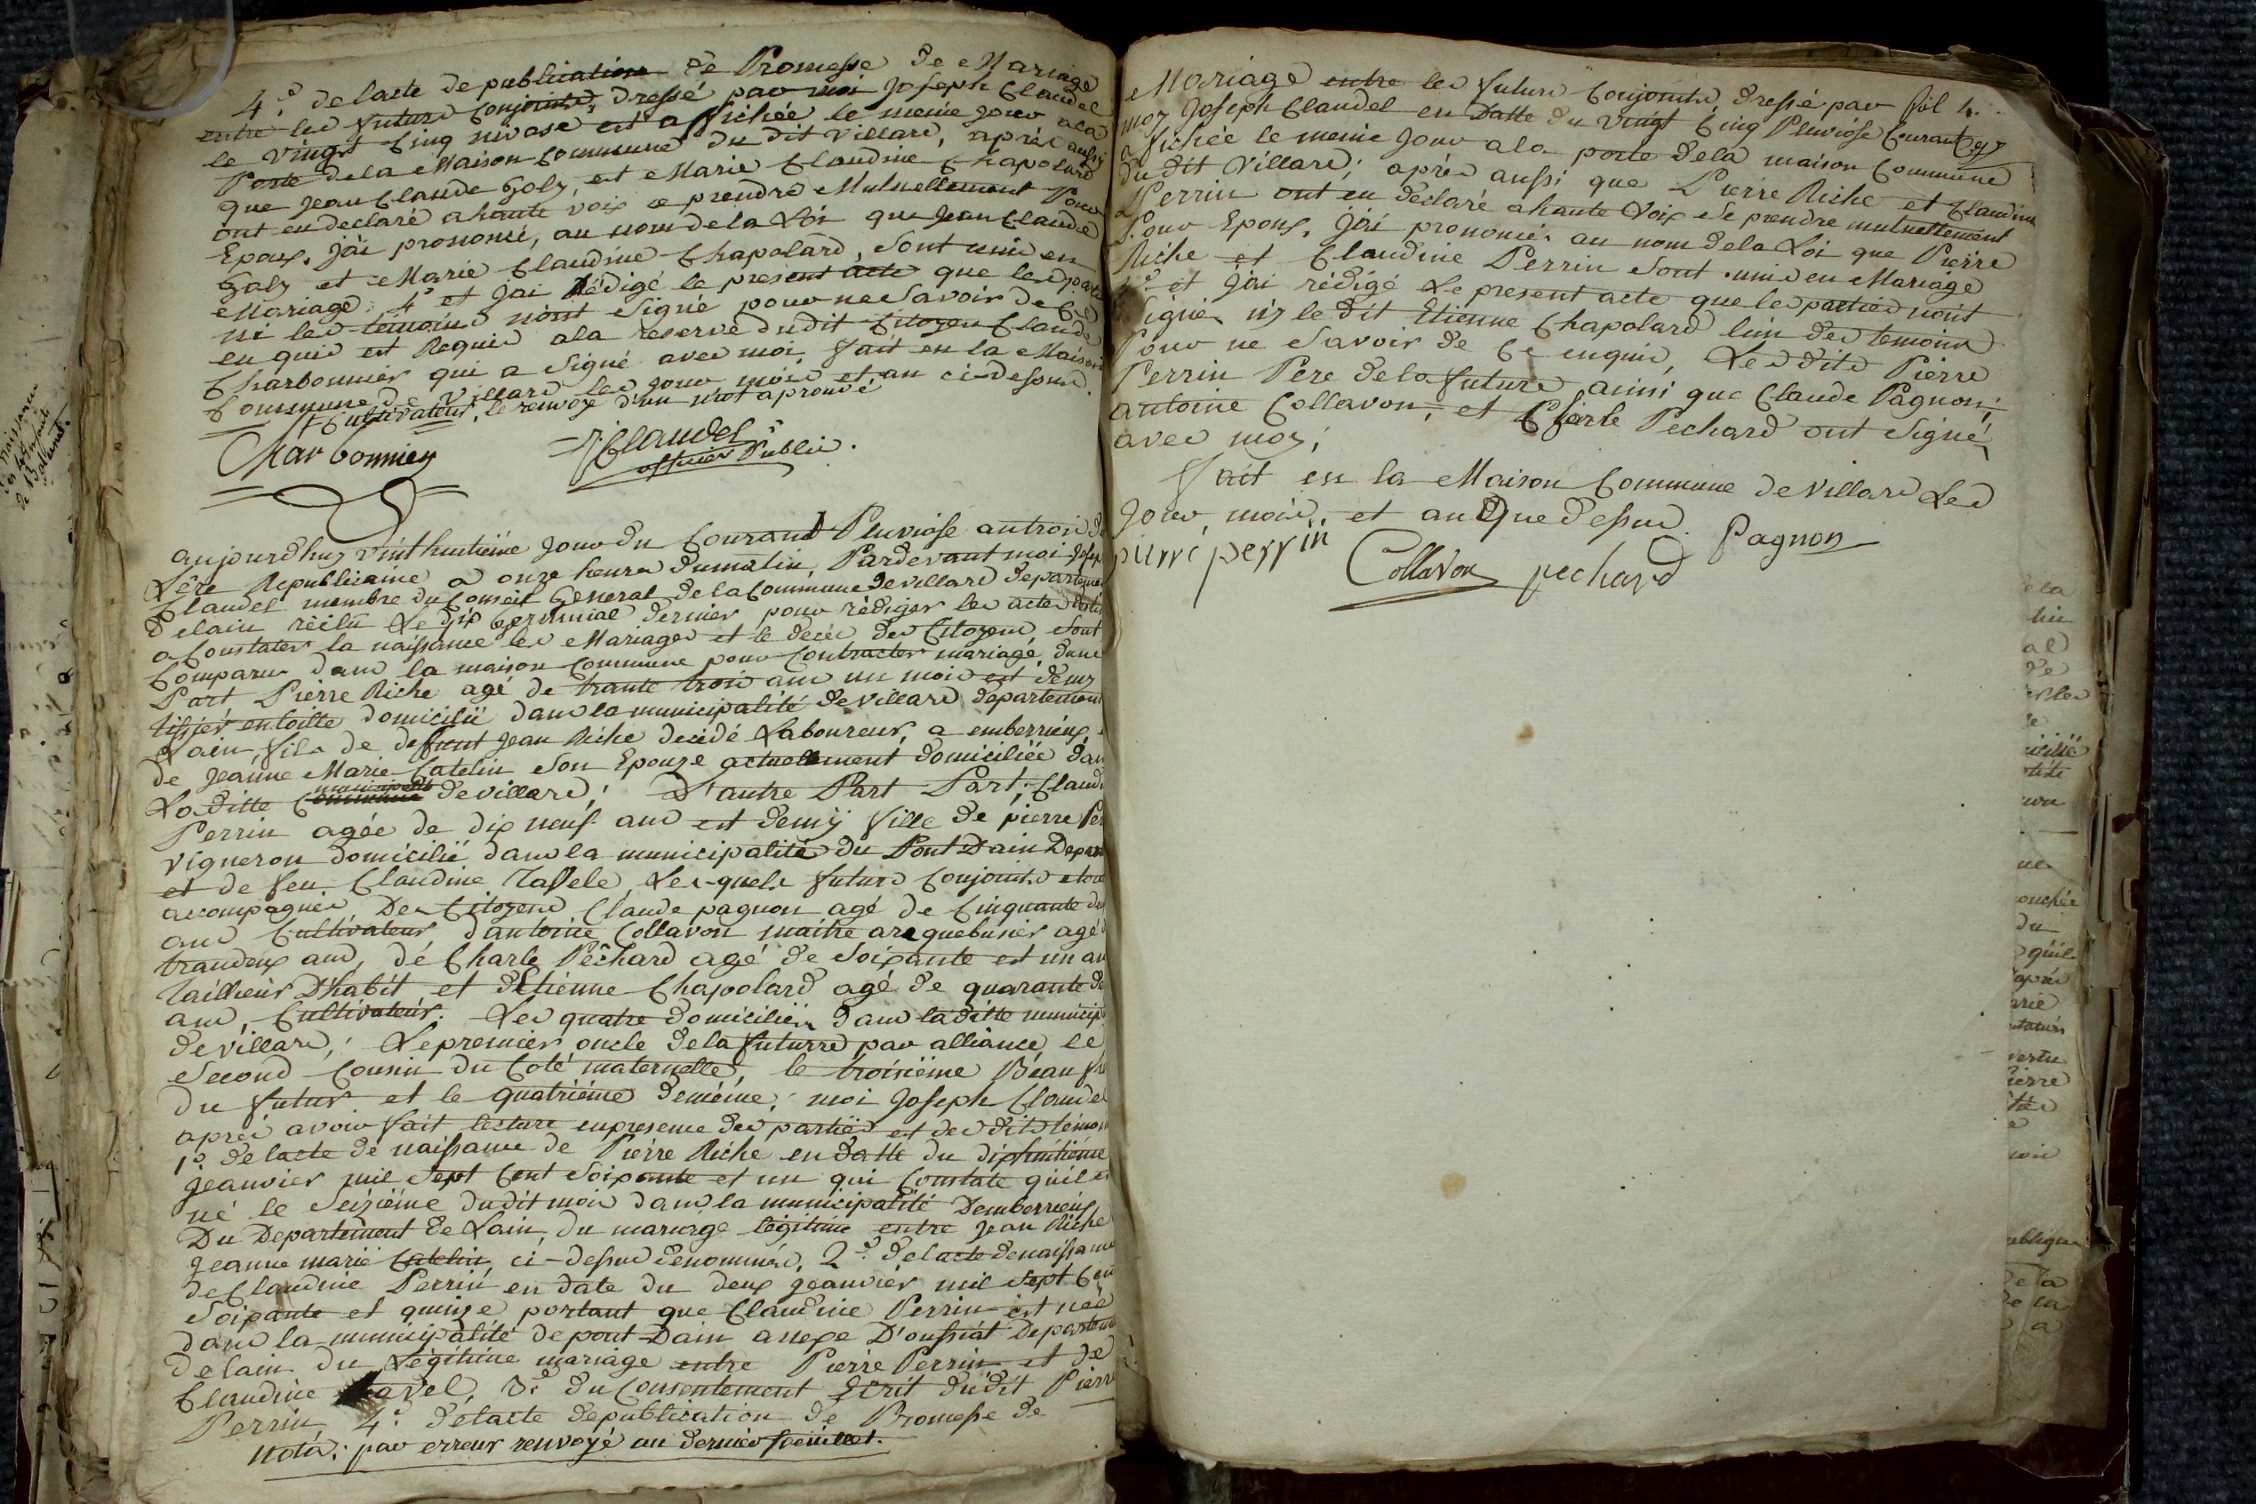 4.° de lacte de publication de Promesse de Mariage
entre les futurs Conjoints, dressé par moi Joseph Claudel
le vingt Cinq nivose est affichée le meme jour a la
Porte de la Maison Commune du dit Villard, après aussi
que Jean Claude Goly, et Marie Claudine Chapolard
ont eu declaré a haute voix se prendre Mutuellement Pour
Epoux. Jái prononcé, au nom de la Loi que Jean Claude
Goly et Marie Claudine Chapolard, sont unis en
Mariage, et jai Rédigé le present acte que les parti
ni les temoins nont Signé pour ne Savoir de Ce
enquis et Requis a la reserve du dit Citoyen Claude
Charbonnier qui a Signé avec moi. fait en la Maison
Commune de Villard les jour mois et an ci-dessus
Cultivateur, le renvoye d'un mot aprouvé
Charbonnier
J Claudel
officier Public.
naissance
de Bollomet
aujourdhuy vint huitiéme jour du Courant Pluviose an trois de
Lére Republicaine a onze heures du matin, Pardevant moi Josep
Claudel membre du Conseil General de la Commune de villard departeme
de lain réélu Le dix Germinal dernier pour rédiger les actes destin
a Constater la naissance les Mariages et le decés des Citoyens, sont
Comparus dans la maison Commune pour Contracter mariage, dune
Part Pierre Riche agé de trante trois ans un mois est demy
tissier en toille domicilié dans la municipalité de villard departement
Lain, fils de deffunt Jean Riche decédé Laboureur, a emberrieux,
de Jeanne Marie Catelin Son Epouze actuellement domiciliée dan
La ditte Commune municipalité de villard; D'autre Part Part, Claud
Perrin agée de dix neuf ans est demÿ fille de pierre Per
vigneron domicilié dans la municipalité du Pont Dain Depar
et de feu Claudine Tavele, Les-quels futurs Conjoints etoie
accompagnes Des Citoyens Claude pagnon agé de Cinquante de
ans Cultivateur d'antoine Collavon maitre arquebusier agé d
trandeux ans, dé Charle Péchard agé de Soixante est un an
tailleur D'habit et d'Etienne Chapolard agé de quarante de
ans, Cultivateur. Les quatre domiciliés dans la ditte municip
de villard; Le premier oncle de la futurre par alliance, le
Second Cousin du Coté maternelle, le troisiéme Béau fre
du futur et le quatriéme deméme; moi Joseph Claudel
aprés avoir fait lecture en presence des partiës et des dits témoi
1.° de lacte de naissance de Piérre Riche en datte du dixhuitiéme
Jeanvier mil Sept Cent Soixante et un qui Constate quil es
né le Seiziéme du dit mois dans la municipalité Demberrieux
Du Departement de Lain, du mariage légitime entre Jean Riche
Jeanne marie Catelin, ci-dessus dénommés, 2.° de lacte de naissance
de Claudine Perrin en date du deux Jeanvier mil Sept Cen
Soixante et quinze portant que Claudine Perrin est née
dans la municipalité de pont Dain anexe D'oussiat Departeme
de lain du Légitime mariage entre Pierre Perrin et de
Claudine Tavel, 3.° du Consentement Ecrit du dit Pierre
Perrin 4.° de lacte depublication de Promesse de
nota: par erreur renvoyé au dernier feuillet.
Mariage entre les futurs Conjoints, dressé par fol 4.
moy Joseph Claudel en Datte du vingt Cinq Pluviose Courant
affichée le meme Jour a la porte de la maison Commune
du dit Villard; aprés aussi que Pierre Riche et Claudine
Perrin ont eu declaré a haute Voix Se prendre mutuellement
Pour Epoux. Jái prononcé au nom de la Loi que Pierre
Riche et Claudine Perrin Sont unis en Mariage
et Jái rédigé Le present acte que les parties nont
Signé, ni le dit Etienne Chapolard lun des temoins
Pour ne Savoir de Ce enquis, Les dits Pierre
Perrin Pere de la future ainsi que Claude Pagnon;
antoine Collavon, et Charle Pechard ont Signé,
avec moy;
fait en la Maison Commune de Villard Les
Jour, mois, et an Que dessus.
pierre perrin
Collavon
pechard
Pagnon